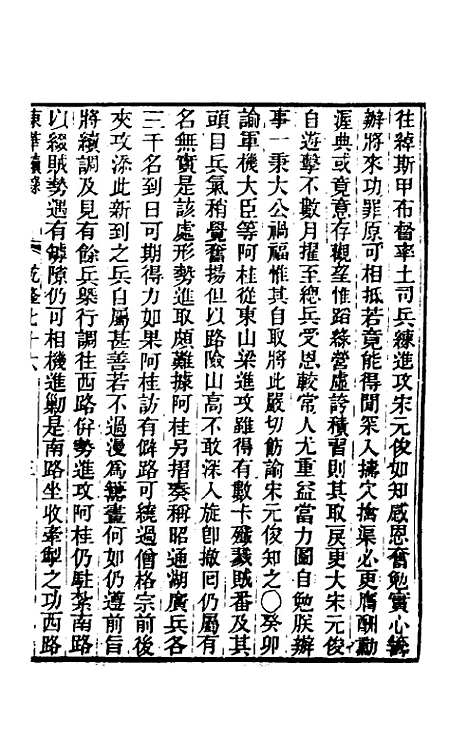 往綽斯甲布督率土司兵練進攻宋元俊如知感恩奮勉實心籌
辦將來功罪原可相抵若竟能得間深入擣穴擒渠必更膺酬勳
渥典或竟意存觀望惟蹈綠營虛誇積習則其取戾更大宋元俊
自遊擊不數月擢至總兵受恩較常人尤重益當力圖自勉朕辦
事一秉大公禍福惟其自取將此嚴切飭諭宋元俊知之〇癸卯
諭軍機大臣等阿桂從東山梁進攻雖得有數卡殲戮賊番及其
頭目兵氣稍覺奮揚但以路險山高不敢深入旋卽撤囘仍屬有
名無實是該處形勢進取頗難據阿桂另摺奏稱昭通湖廣兵各
三千名到日可期得力如果阿桂訪有僻路可繞過僧格宗前後
夾攻添此新到之兵自屬甚善若不過漫爲籌畫何如仍遵前旨
將續調及見有餘兵舉行調往西路倂勢進攻阿桂仍駐紮南路
以綴賊勢遇有罅隙仍可相機進勦是南路坐收牽掣之功西路
東華續錄 乾隆七十六